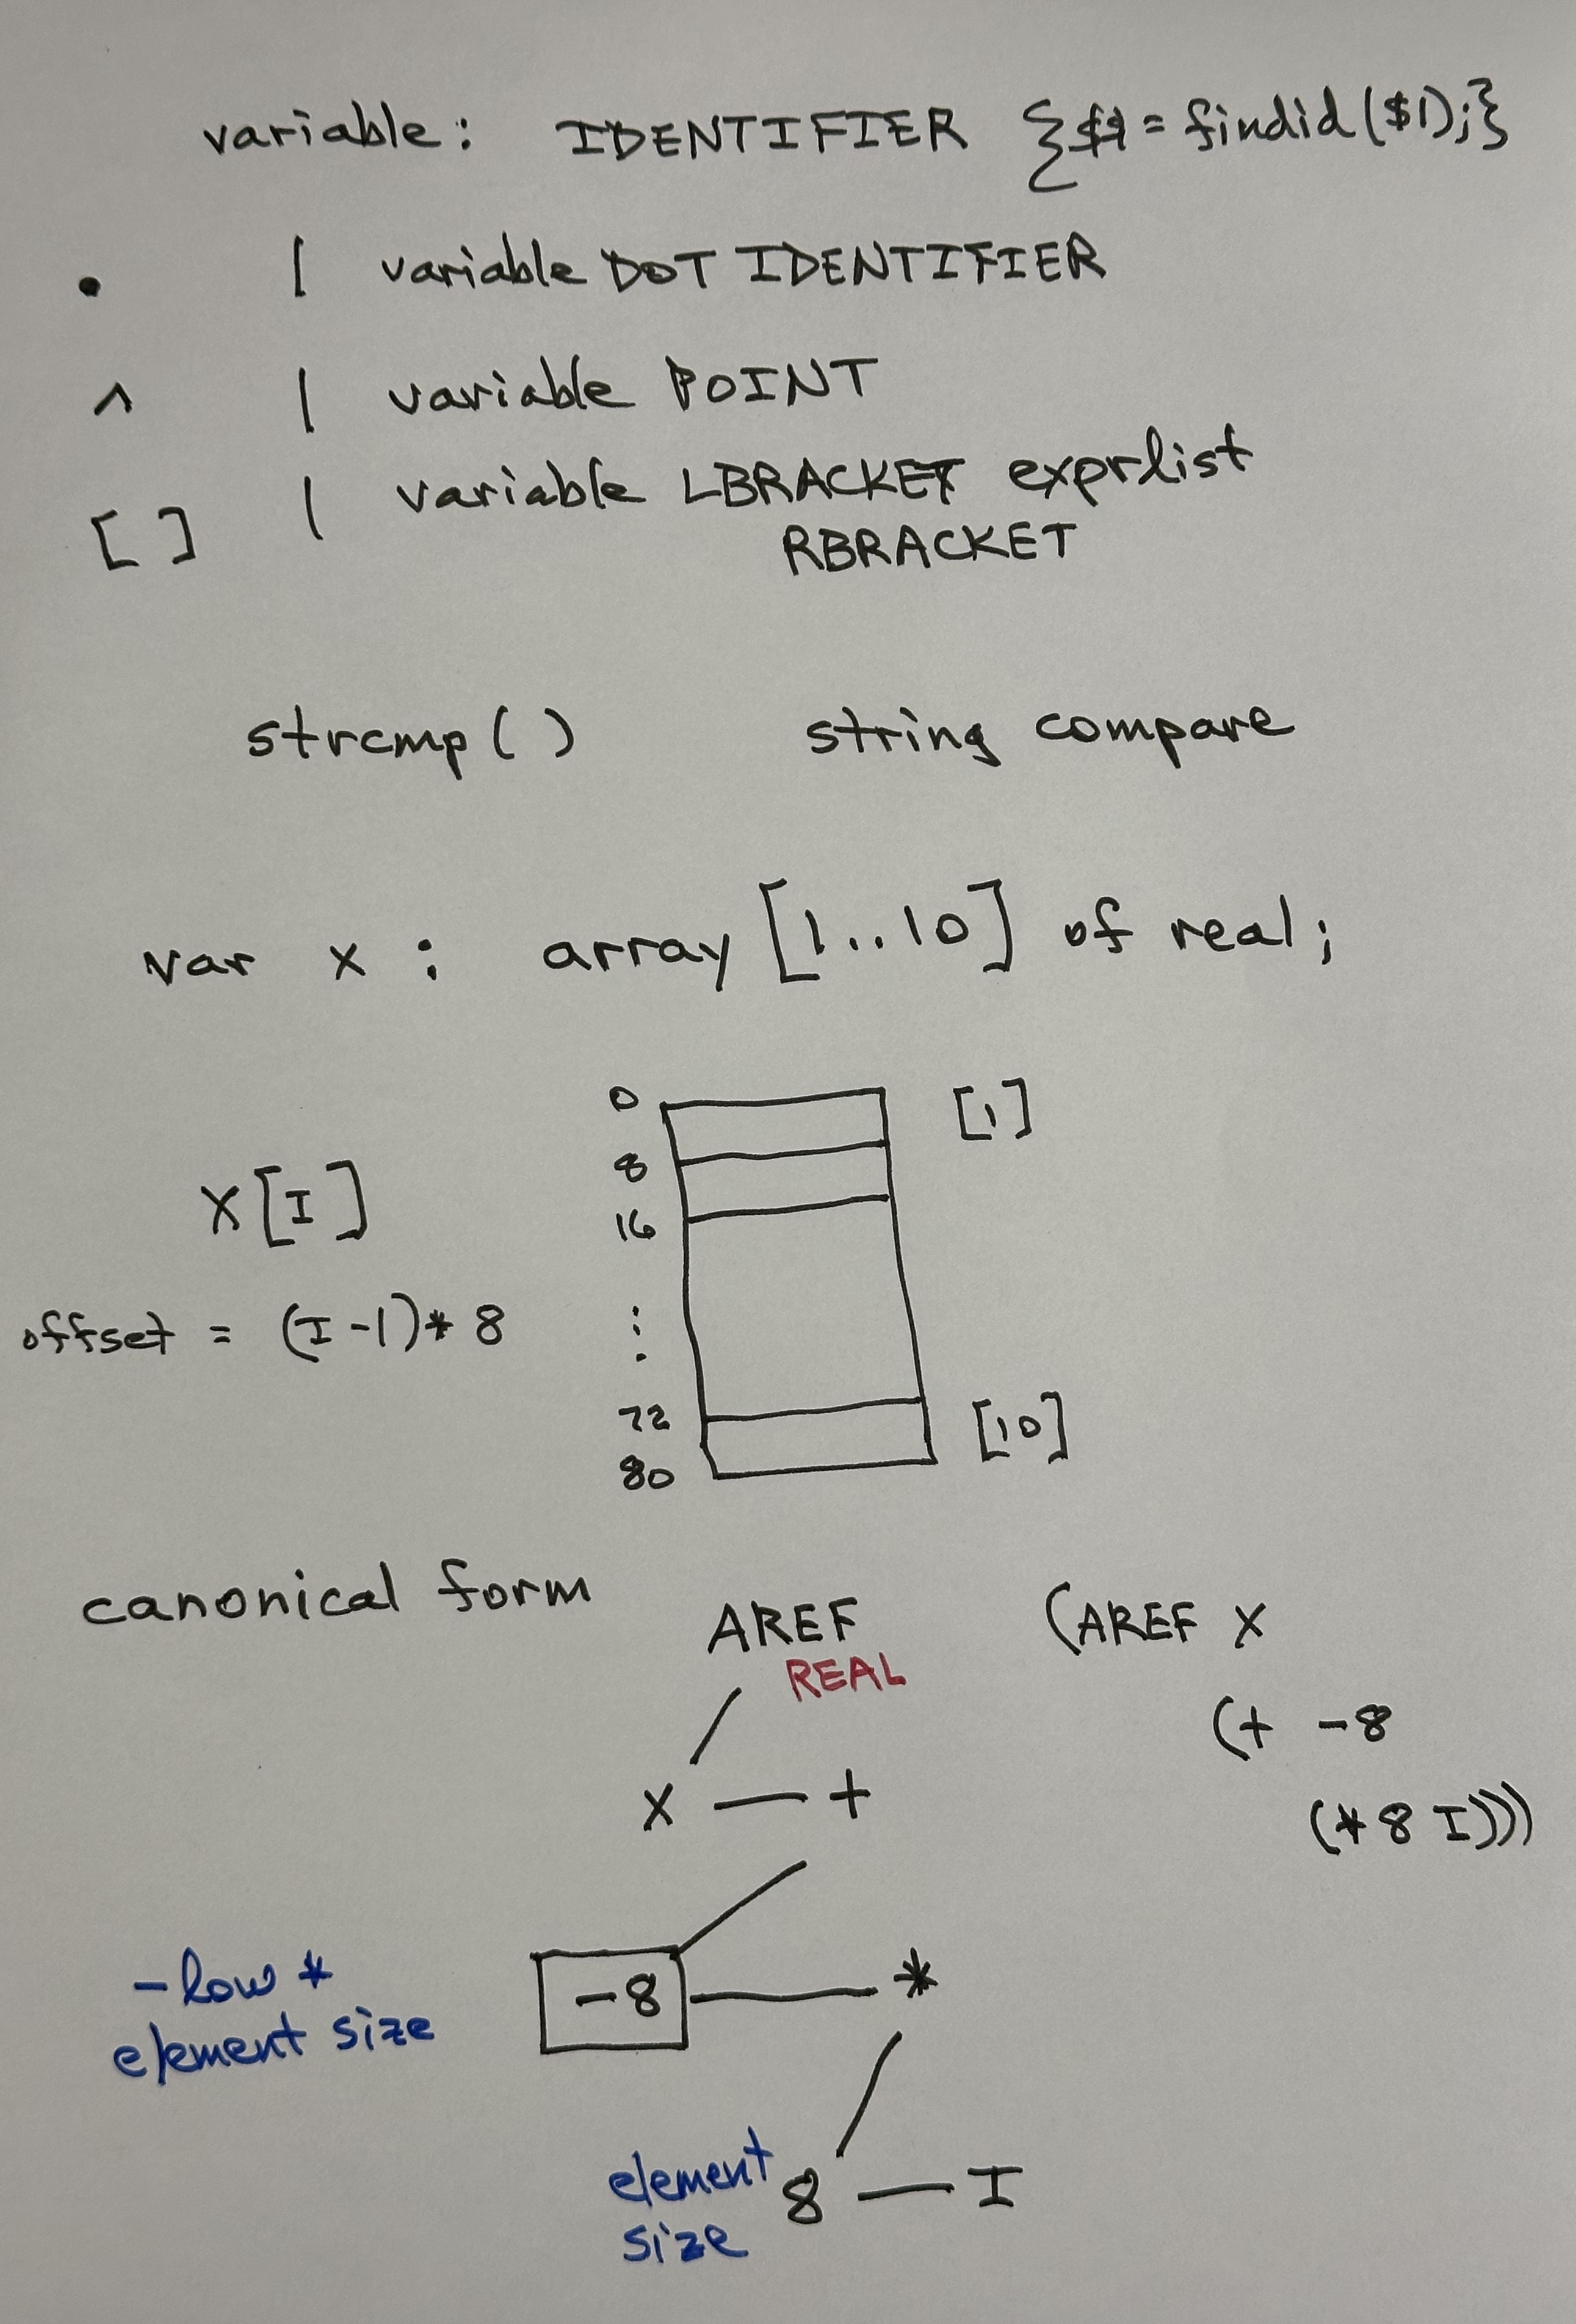 variable: IDENTIFIER {$$ = findid($1);}
. | variable DOT IDENTIFIER
^ | variable POINT
[ ] | variable LBRACKET exprlist
RBRACKET
strcmp( ) string compare
var x : array [1..10] of real;
0 [1]
8
X[I]
16
offset = (I-1)* 8
:
72
[10]
80
canonical form
AREF (AREF X
REAL
(+ -8
X — +
(* 8 I)))
-low *
element size
-8 — *
element
size
8 — I